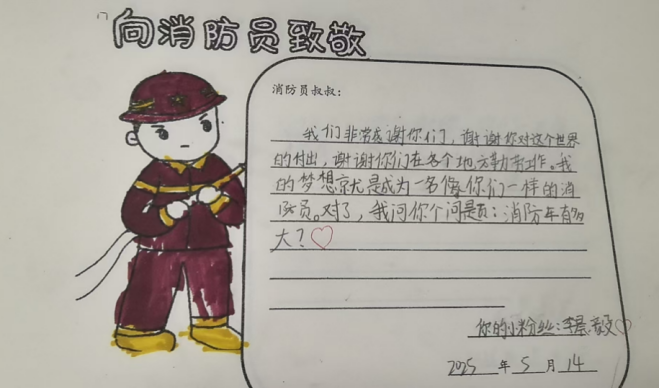 向消防员致敬
消防员叔叔：
我们非常感谢你们，谢谢你对这个世界
的付出，谢谢你们在各个地方勤劳工作。我
的梦想就是成为一名像你们一样的消
防员。对了，我问你个问题：消防车有多
大？♡
你的小粉丝：李毅♡
2025年5月14